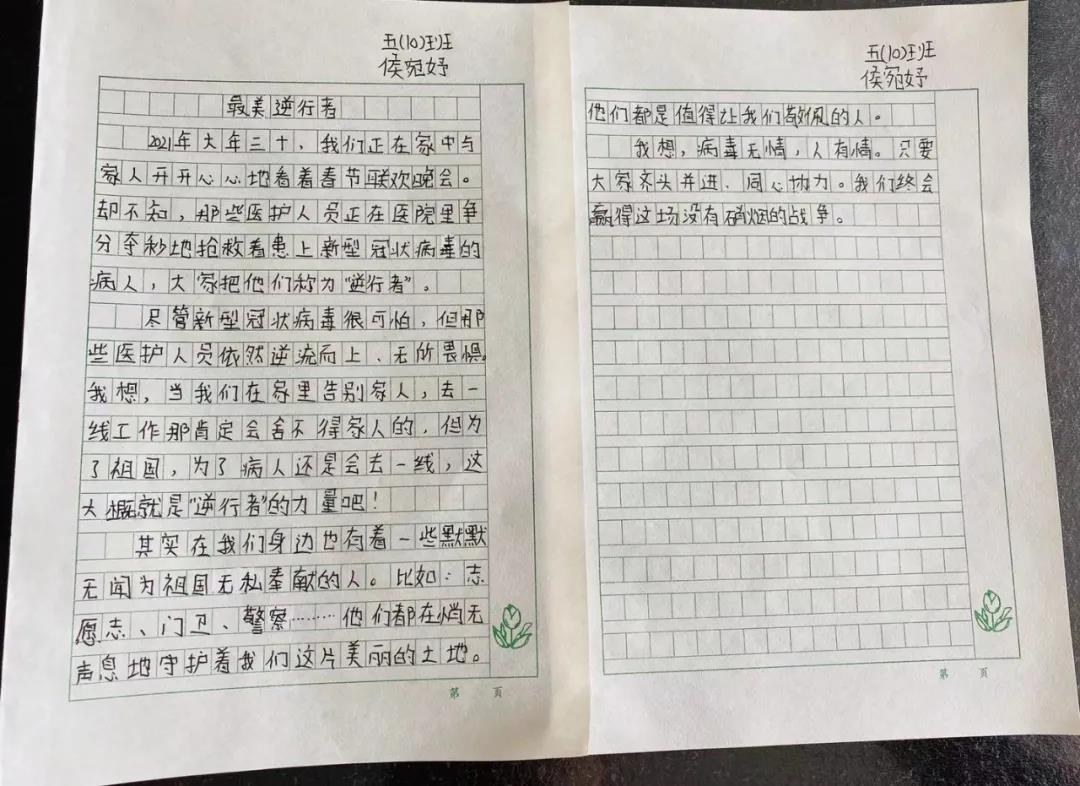 五(10)班
侯宛妤
最美逆行者
2021年大年三十，我们正在家中与
家人开开心心地看着春节联欢晚会。
却不知，那些医护人员正在医院里争
分夺秒地抢救着患上新型冠状病毒的
病人，大家把他们称为“逆行者”。
尽管新型冠状病毒很可怕，但那
些医护人员依然逆流而上、无所畏惧。
我想，当我们在家里告别家人，去一
线工作那肯定会舍不得家人的，但为
了祖国，为了病人还是会去一线，这
大概就是“逆行者”的力量吧！
其实在我们身边也有着一些默默
无闻为祖国无私奉献的人。比如：志
愿志、门卫、警察………他们都在悄无
声息地守护着我们这片美丽的土地。
第 页
五(10)班
侯宛妤
他们都是值得让我们敬佩的人。
我想，病毒无情，人有情。只要
大家齐头并进、同心协力。我们终会
赢得这场没有硝烟的战争。
第 页